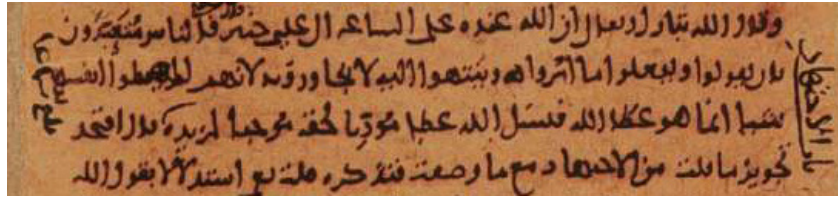 وقول الله تبارك وتعالى ان الله عنده علم الساعه الى عليم خبير فالناس متعبدون
بان يقولوا ويفعلوا ما امروا به وينتهوا اليه لا يجاوزونه لانهم لم يعطوا انفسهم
شيا انما هو عطا الله فنسل الله عطا موديا لحقه موجبا لمزيده قال افتجد
تجويز ما قلت من الاجتهاد مع ما وصفت فتذكره قلت نعم استدلالا بقول الله
باب الاجتهاد